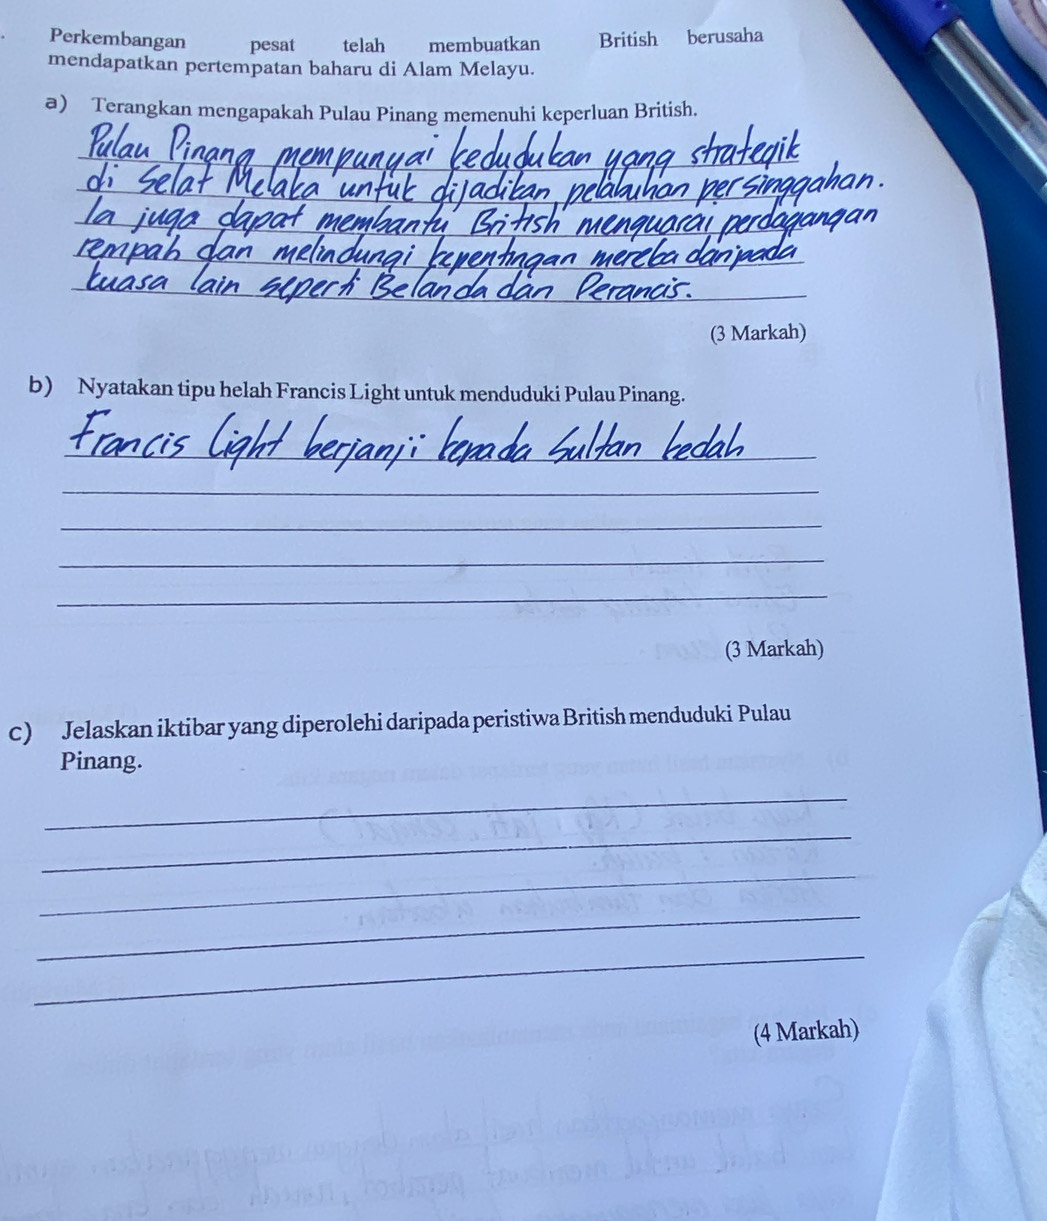 Perkembangan pesat telah membuatkan British berusaha
mendapatkan pertempatan baharu di Alam Melayu.
a) Terangkan mengapakah Pulau Pinang memenuhi keperluan British.
Pulau Pinang mempunyai kedudukan yang strategik
di Selat Melaka untuk dijadikan pelabuhan persinggahan.
Ia juga dapat membantu British menguasai perdagangan
rempah dan melindungi kepentingan mereka daripada
kuasa lain seperti Belanda dan Perancis.
(3 Markah)
b) Nyatakan tipu helah Francis Light untuk menduduki Pulau Pinang.
Francis Light berjanji kepada Sultan kedah
(3 Markah)
c) Jelaskan iktibar yang diperolehi daripada peristiwa British menduduki Pulau
Pinang.
(4 Markah)